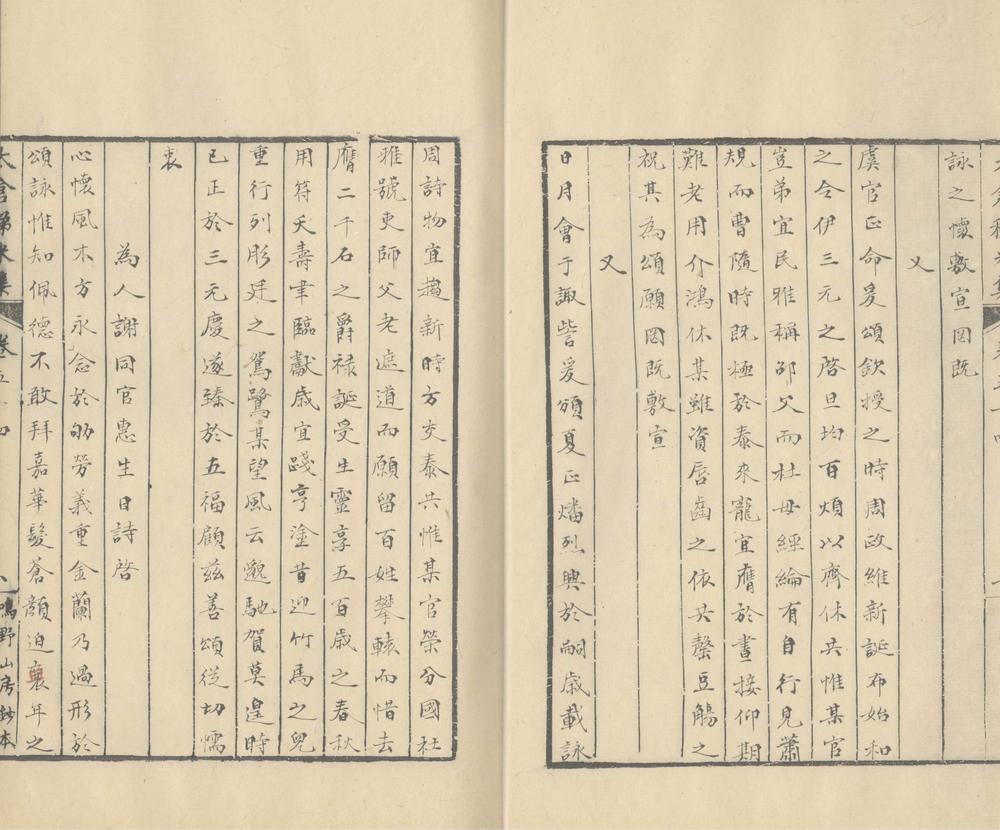 詠之懷敷宣罔既
又
虞官正命爰頌欽授之時周政維新誕布始和
之令伊三元之啓旦均百煩以齊休共惟某官
豈弟宜民雅稱邵父而杜母經綸有自行見蕭
規而曹隨時既極於泰來寵宜膺於晝接仰期
難老用介鴻休某雖資唇齒之依共罄豆觴之
祝其為頌願罔既敷宣
又
日月會于諏訾爰頒夏正燔烈興於嗣歲載詠
周詩物宜趨新時方交泰共惟某官榮分國社
雅號吏師父老遮道而願留百姓攀轅而惜去
膺二千石之爵祿誕受生靈享五百歲之春秋
用符天壽聿臨獻歲宜踐亨塗昔迎竹馬之兒
重行列彤廷之鴛鷺某望風云邈馳賀莫遑時
已正於三元慶遂臻於五福顧茲善頌從切懦
衷
為人謝同官惠生日詩啓
心懷風木方永念於劬勞義重金蘭乃過形於
頌詠惟知佩德不敢拜嘉華髮蒼顏迫衰年之
太倉稊米集 卷五十四
八 鳴野山房鈔本